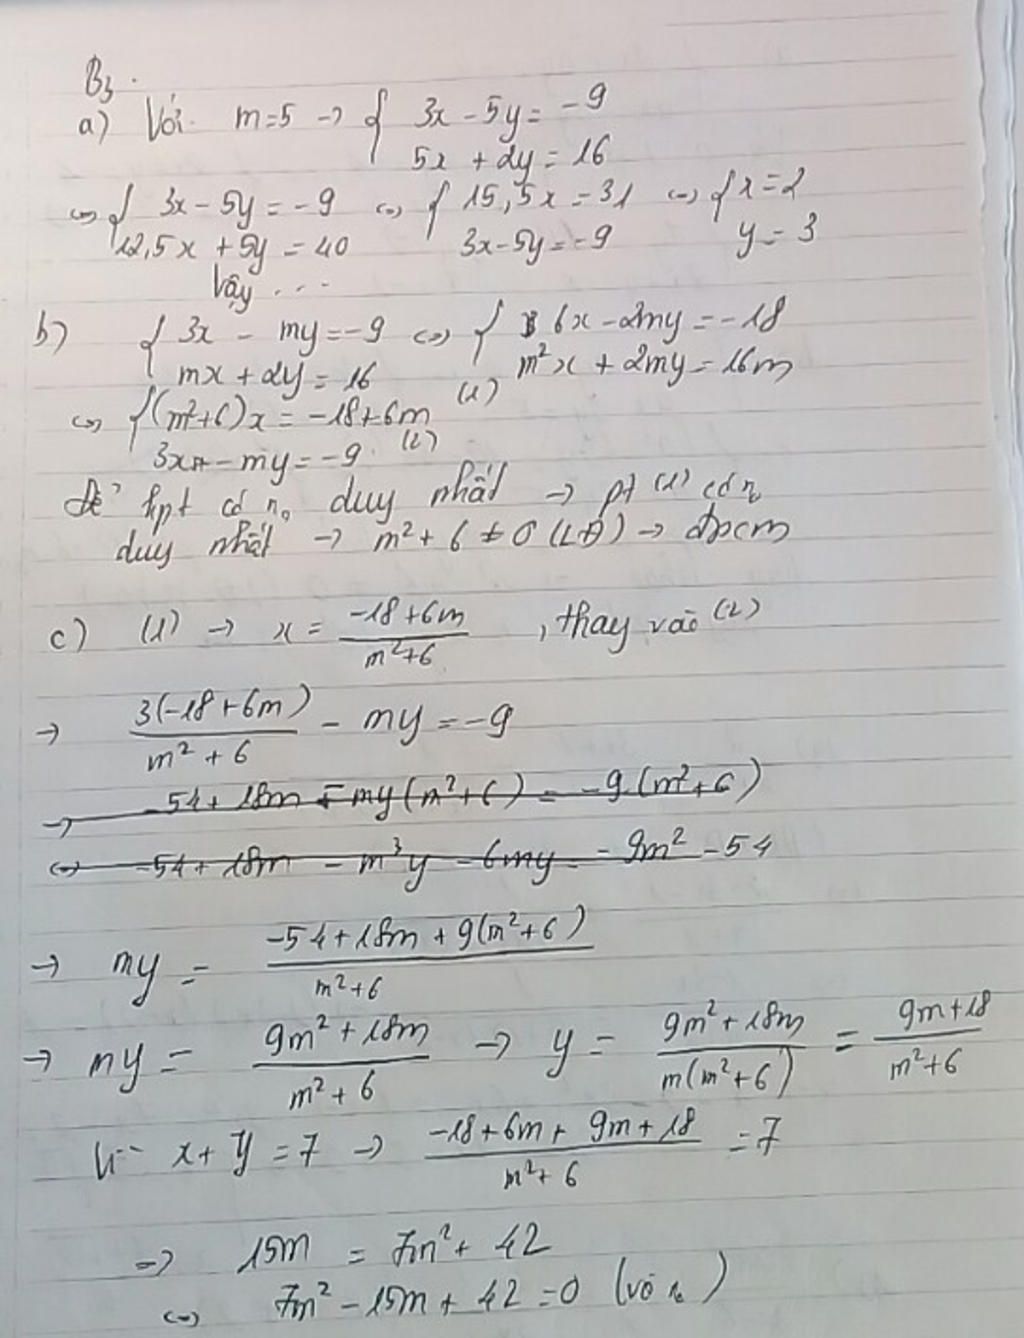 B3.
a) Với m=5 → { 3x - 5y = -9
5x + 2y = 16
⇔ { 3x - 5y = -9 ⇔ { 15,5x = 31 ⇔ { x = 2
12,5x + 5y = 40 3x - 5y = -9 y = 3
Vậy ...
b) { 3x - my = -9 ⇔ { 6x - 2my = -18
mx + 2y = 16 m²x + 2my = 16m
⇔ { (m²+6)x = -18+6m (1)
3x - my = -9 (2)
Để hpt có n₀ duy nhất → pt (1) có n₀
duy nhất → m² + 6 ≠ 0 (LĐ) → đpcm
c) (1) → x = \frac{-18+6m}{m²+6} , thay vào (2)
→ \frac{3(-18+6m)}{m²+6} - my = -9
→ -54 + 18m - my(m²+6) = -9(m²+6)
⇔ -54 + 18m - m³y - 6my = -9m² - 54
→ my = \frac{-54+18m+9(m²+6)}{m²+6}
→ my = \frac{9m²+18m}{m²+6} → y = \frac{9m²+18m}{m(m²+6)} = \frac{9m+18}{m²+6}
Vì x + y = 7 → \frac{-18+6m+9m+18}{m²+6} = 7
→ 15m = 7m² + 42
⇔ 7m² - 15m + 42 = 0 (vô n₀)